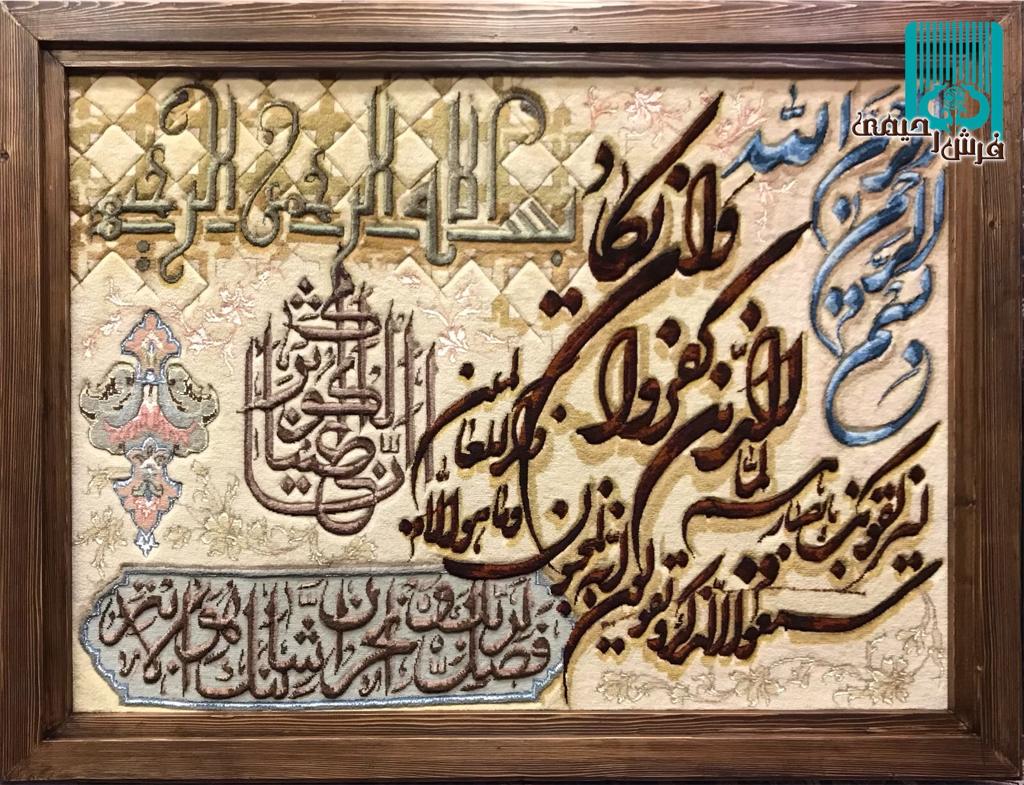 فرش رحیمی
بسم الله الرحمن الرحیم
بسم الله الرحمن الرحیم
وان یکاد
الذین کفروا
لیزلقونک بابصارهم لما
سمعوا الذکر و یقولون انه لمجنون
وما هو الا ذکر للعالمین
انا اعطیناک الکوثر
فصل لربک وانحر ان شانئک هو الابتر